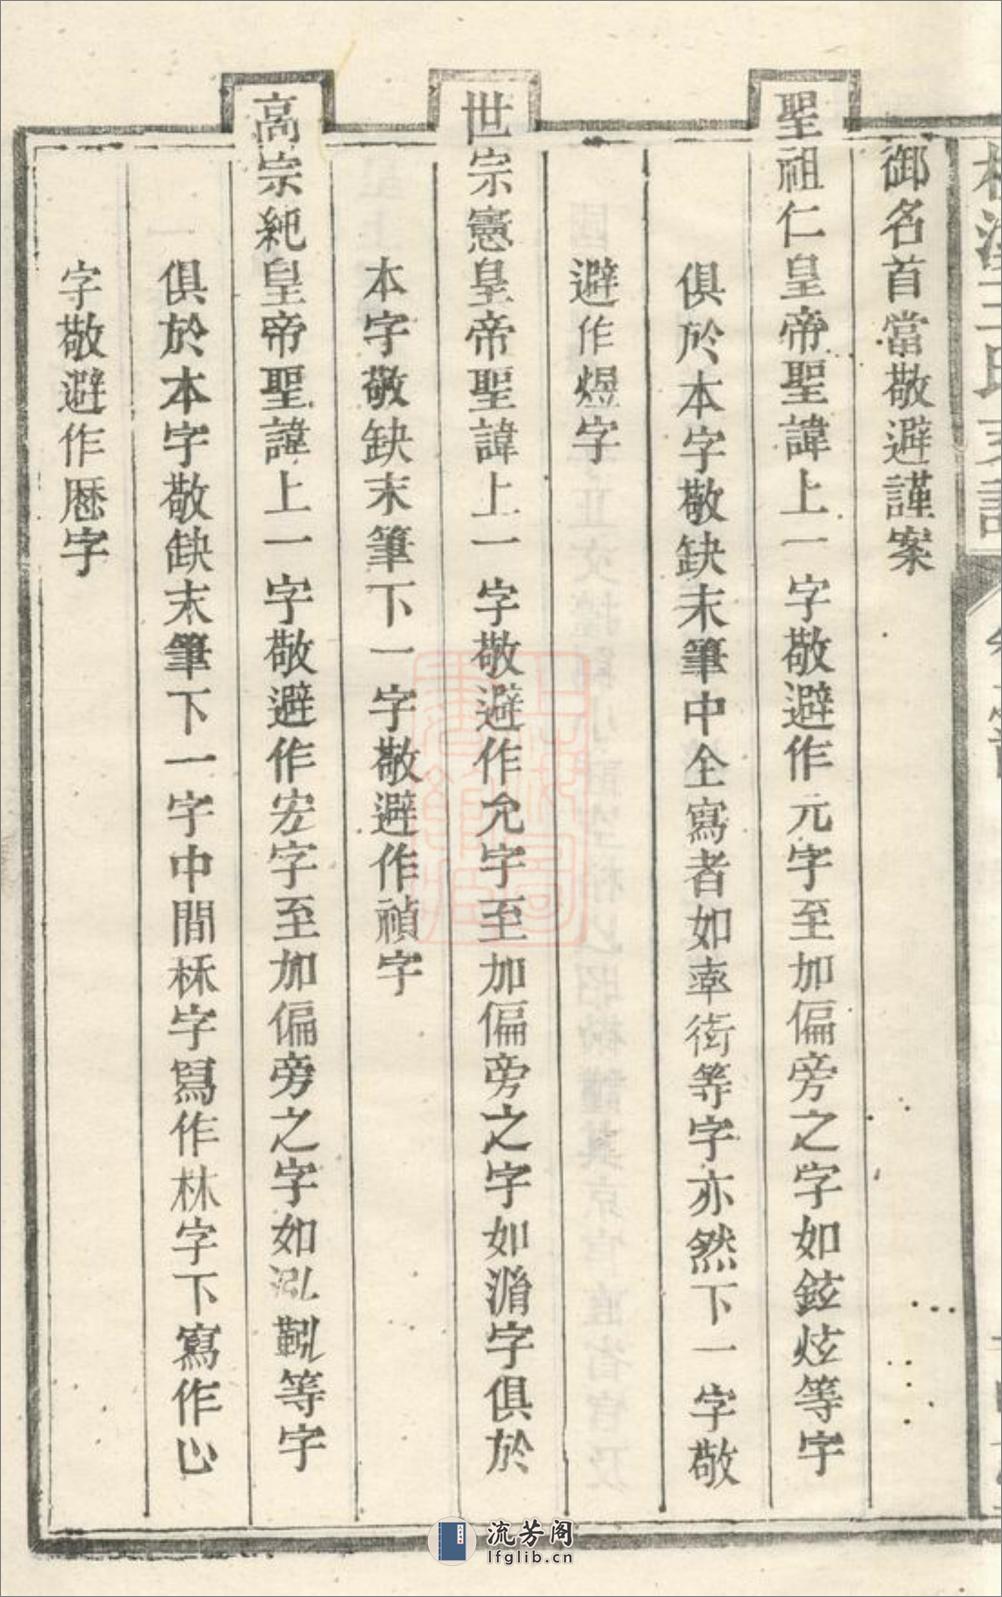 御名首當敬避謹案
聖祖仁皇帝聖諱上一字敬避作元字至加偏旁之字如鉉炫等字
俱於本字敬缺末筆中全寫者如率衒等字亦然下一字敬
避作煜字
世宗憲皇帝聖諱上一字敬避作允字至加偏旁之字如㴭字俱於
本字敬缺末筆下一字敬避作禎字
高宗純皇帝聖諱上一字敬避作宏字至加偏旁之字如泓鞃等字
俱於本字敬缺末筆下一字中間秝字寫作林字下寫作心
字敬避作厯字
流芳阁
lfglib.cn